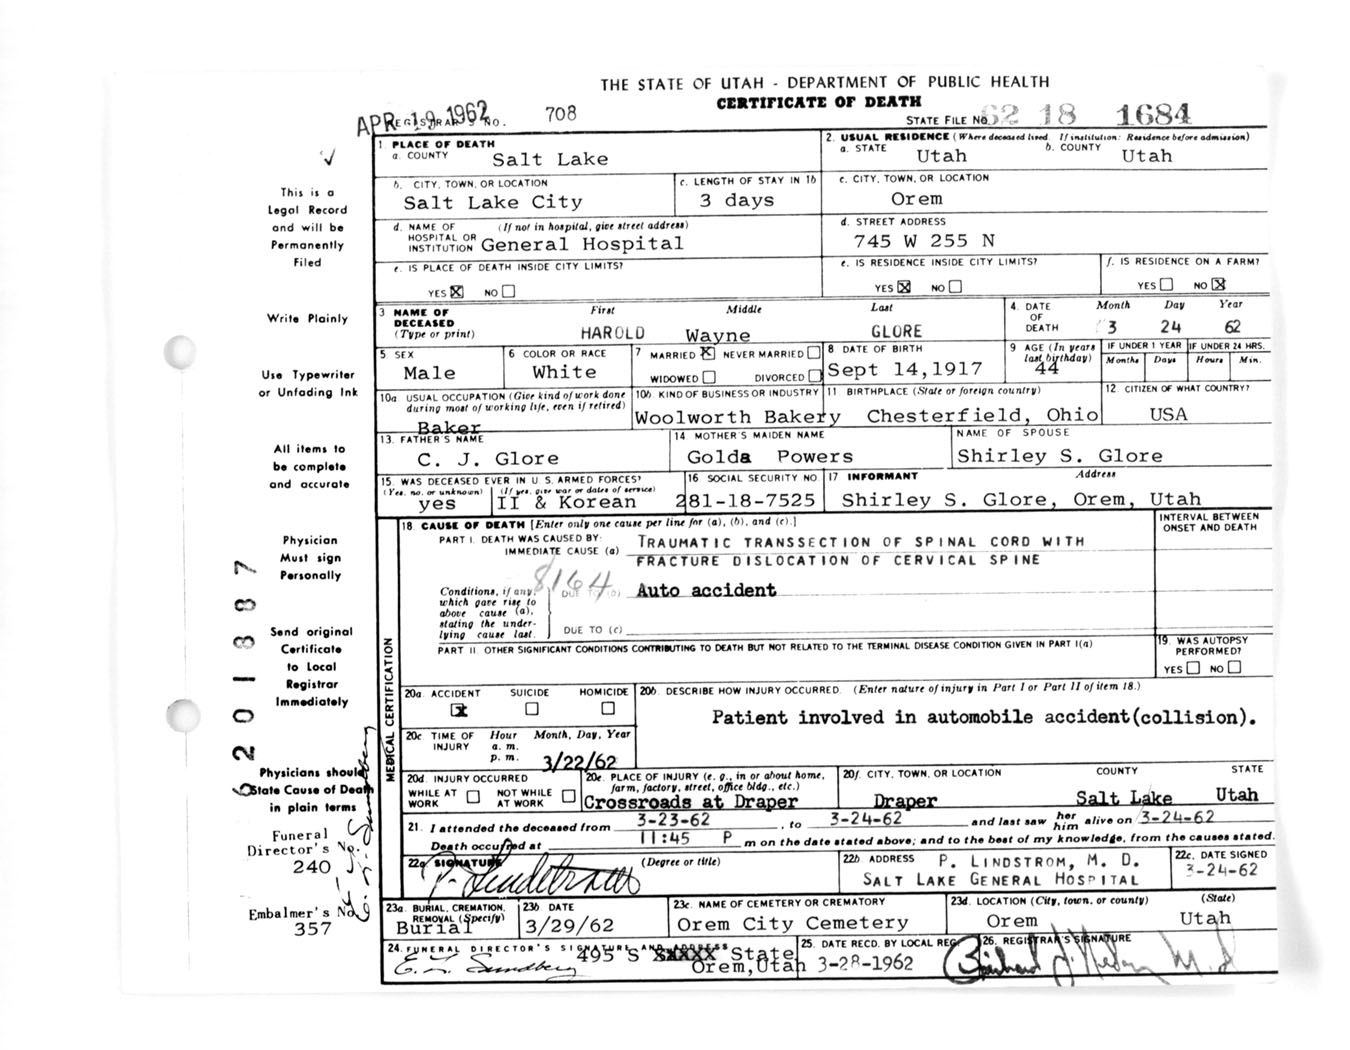 THE STATE OF UTAH - DEPARTMENT OF PUBLIC HEALTH
CERTIFICATE OF DEATH
APR 19 1962
REGISTRAR'S NO. 708
STATE FILE NO. 62 18 1684
1. PLACE OF DEATH
a. COUNTY Salt Lake
2. USUAL RESIDENCE (Where deceased lived. If institution: Residence before admission)
a. STATE Utah b. COUNTY Utah
b. CITY, TOWN, OR LOCATION Salt Lake City
c. LENGTH OF STAY IN 1b 3 days
c. CITY, TOWN, OR LOCATION Orem
d. NAME OF HOSPITAL OR INSTITUTION (If not in hospital, give street address) General Hospital
d. STREET ADDRESS 745 W 255 N
e. IS PLACE OF DEATH INSIDE CITY LIMITS?
YES ☒ NO ☐
e. IS RESIDENCE INSIDE CITY LIMITS?
YES ☒ NO ☐
f. IS RESIDENCE ON A FARM?
YES ☐ NO ☒
3 NAME OF DECEASED (Type or print) First Middle Last
HAROLD Wayne GLORE
4. DATE OF DEATH Month Day Year
3 24 62
5 SEX Male
6 COLOR OR RACE White
7 MARRIED ☒ NEVER MARRIED ☐
WIDOWED ☐ DIVORCED ☐
8 DATE OF BIRTH Sept 14,1917
9 AGE (In years last birthday) 44
IF UNDER 1 YEAR Months Days
IF UNDER 24 HRS. Hours Min.
10a USUAL OCCUPATION (Give kind of work done during most of working life, even if retired) Baker
10b. KIND OF BUSINESS OR INDUSTRY Woolworth Bakery
11 BIRTHPLACE (State or foreign country) Chesterfield, Ohio
12. CITIZEN OF WHAT COUNTRY? USA
13. FATHER'S NAME C. J. Glore
14 MOTHER'S MAIDEN NAME Golda Powers
NAME OF SPOUSE Shirley S. Glore
15. WAS DECEASED EVER IN U.S. ARMED FORCES?
(Yes, no, or unknown) (If yes, give war or dates of service)
yes II & Korean
16 SOCIAL SECURITY NO. 281-18-7525
17 INFORMANT Address
Shirley S. Glore, Orem, Utah
18. CAUSE OF DEATH [Enter only one cause per line for (a), (b), and (c).]
INTERVAL BETWEEN ONSET AND DEATH
PART I. DEATH WAS CAUSED BY:
IMMEDIATE CAUSE (a) TRAUMATIC TRANSSECTION OF SPINAL CORD WITH
FRACTURE DISLOCATION OF CERVICAL SPINE
8164
Conditions, if any, which gave rise to above cause (a), stating the underlying cause last.
DUE TO (b) Auto accident
DUE TO (c)
PART II. OTHER SIGNIFICANT CONDITIONS CONTRIBUTING TO DEATH BUT NOT RELATED TO THE TERMINAL DISEASE CONDITION GIVEN IN PART I(a)
19. WAS AUTOPSY PERFORMED?
YES ☐ NO ☐
MEDICAL CERTIFICATION
20a. ACCIDENT SUICIDE HOMICIDE
☒ ☐ ☐
20b. DESCRIBE HOW INJURY OCCURRED. (Enter nature of injury in Part I or Part II of item 18.)
Patient involved in automobile accident(collision).
20c. TIME OF INJURY Hour Month, Day, Year
a. m.
p. m. 3/22/62
20d. INJURY OCCURRED
WHILE AT WORK ☐ NOT WHILE AT WORK ☐
20e. PLACE OF INJURY (e. g., in or about home, farm, factory, street, office bldg., etc.)
Crossroads at Draper
20f. CITY, TOWN, OR LOCATION COUNTY STATE
Draper Salt Lake Utah
21. I attended the deceased from 3-23-62, to 3-24-62 and last saw her him alive on 3-24-62
Death occurred at 11:45 P m on the date stated above; and to the best of my knowledge, from the causes stated.
22a SIGNATURE (Degree or title)
P. Lindstrom
22b ADDRESS P. LINDSTROM, M. D.
SALT LAKE GENERAL HOSPITAL
22c. DATE SIGNED 3-24-62
23a. BURIAL, CREMATION, REMOVAL (Specify) Burial
23b DATE 3/29/62
23c. NAME OF CEMETERY OR CREMATORY Orem City Cemetery
23d. LOCATION (City, town, or county) (State)
Orem Utah
24. FUNERAL DIRECTOR'S SIGNATURE AND ADDRESS
E. L. Sundberg 495 S XXXXX State
Orem,Utah
25. DATE RECD. BY LOCAL REG. 3-28-1962
26. REGISTRAR'S SIGNATURE
This is a
Legal Record
and will be
Permanently
Filed
Write Plainly
Use Typewriter
or Unfading Ink
All items to
be complete
and accurate
Physician
Must sign
Personally
Send original
Certificate
to Local
Registrar
Immediately
Physicians should
State Cause of Death
in plain terms
Funeral
Director's No.
240
Embalmer's No.
357
6201387
E. L. Sundberg